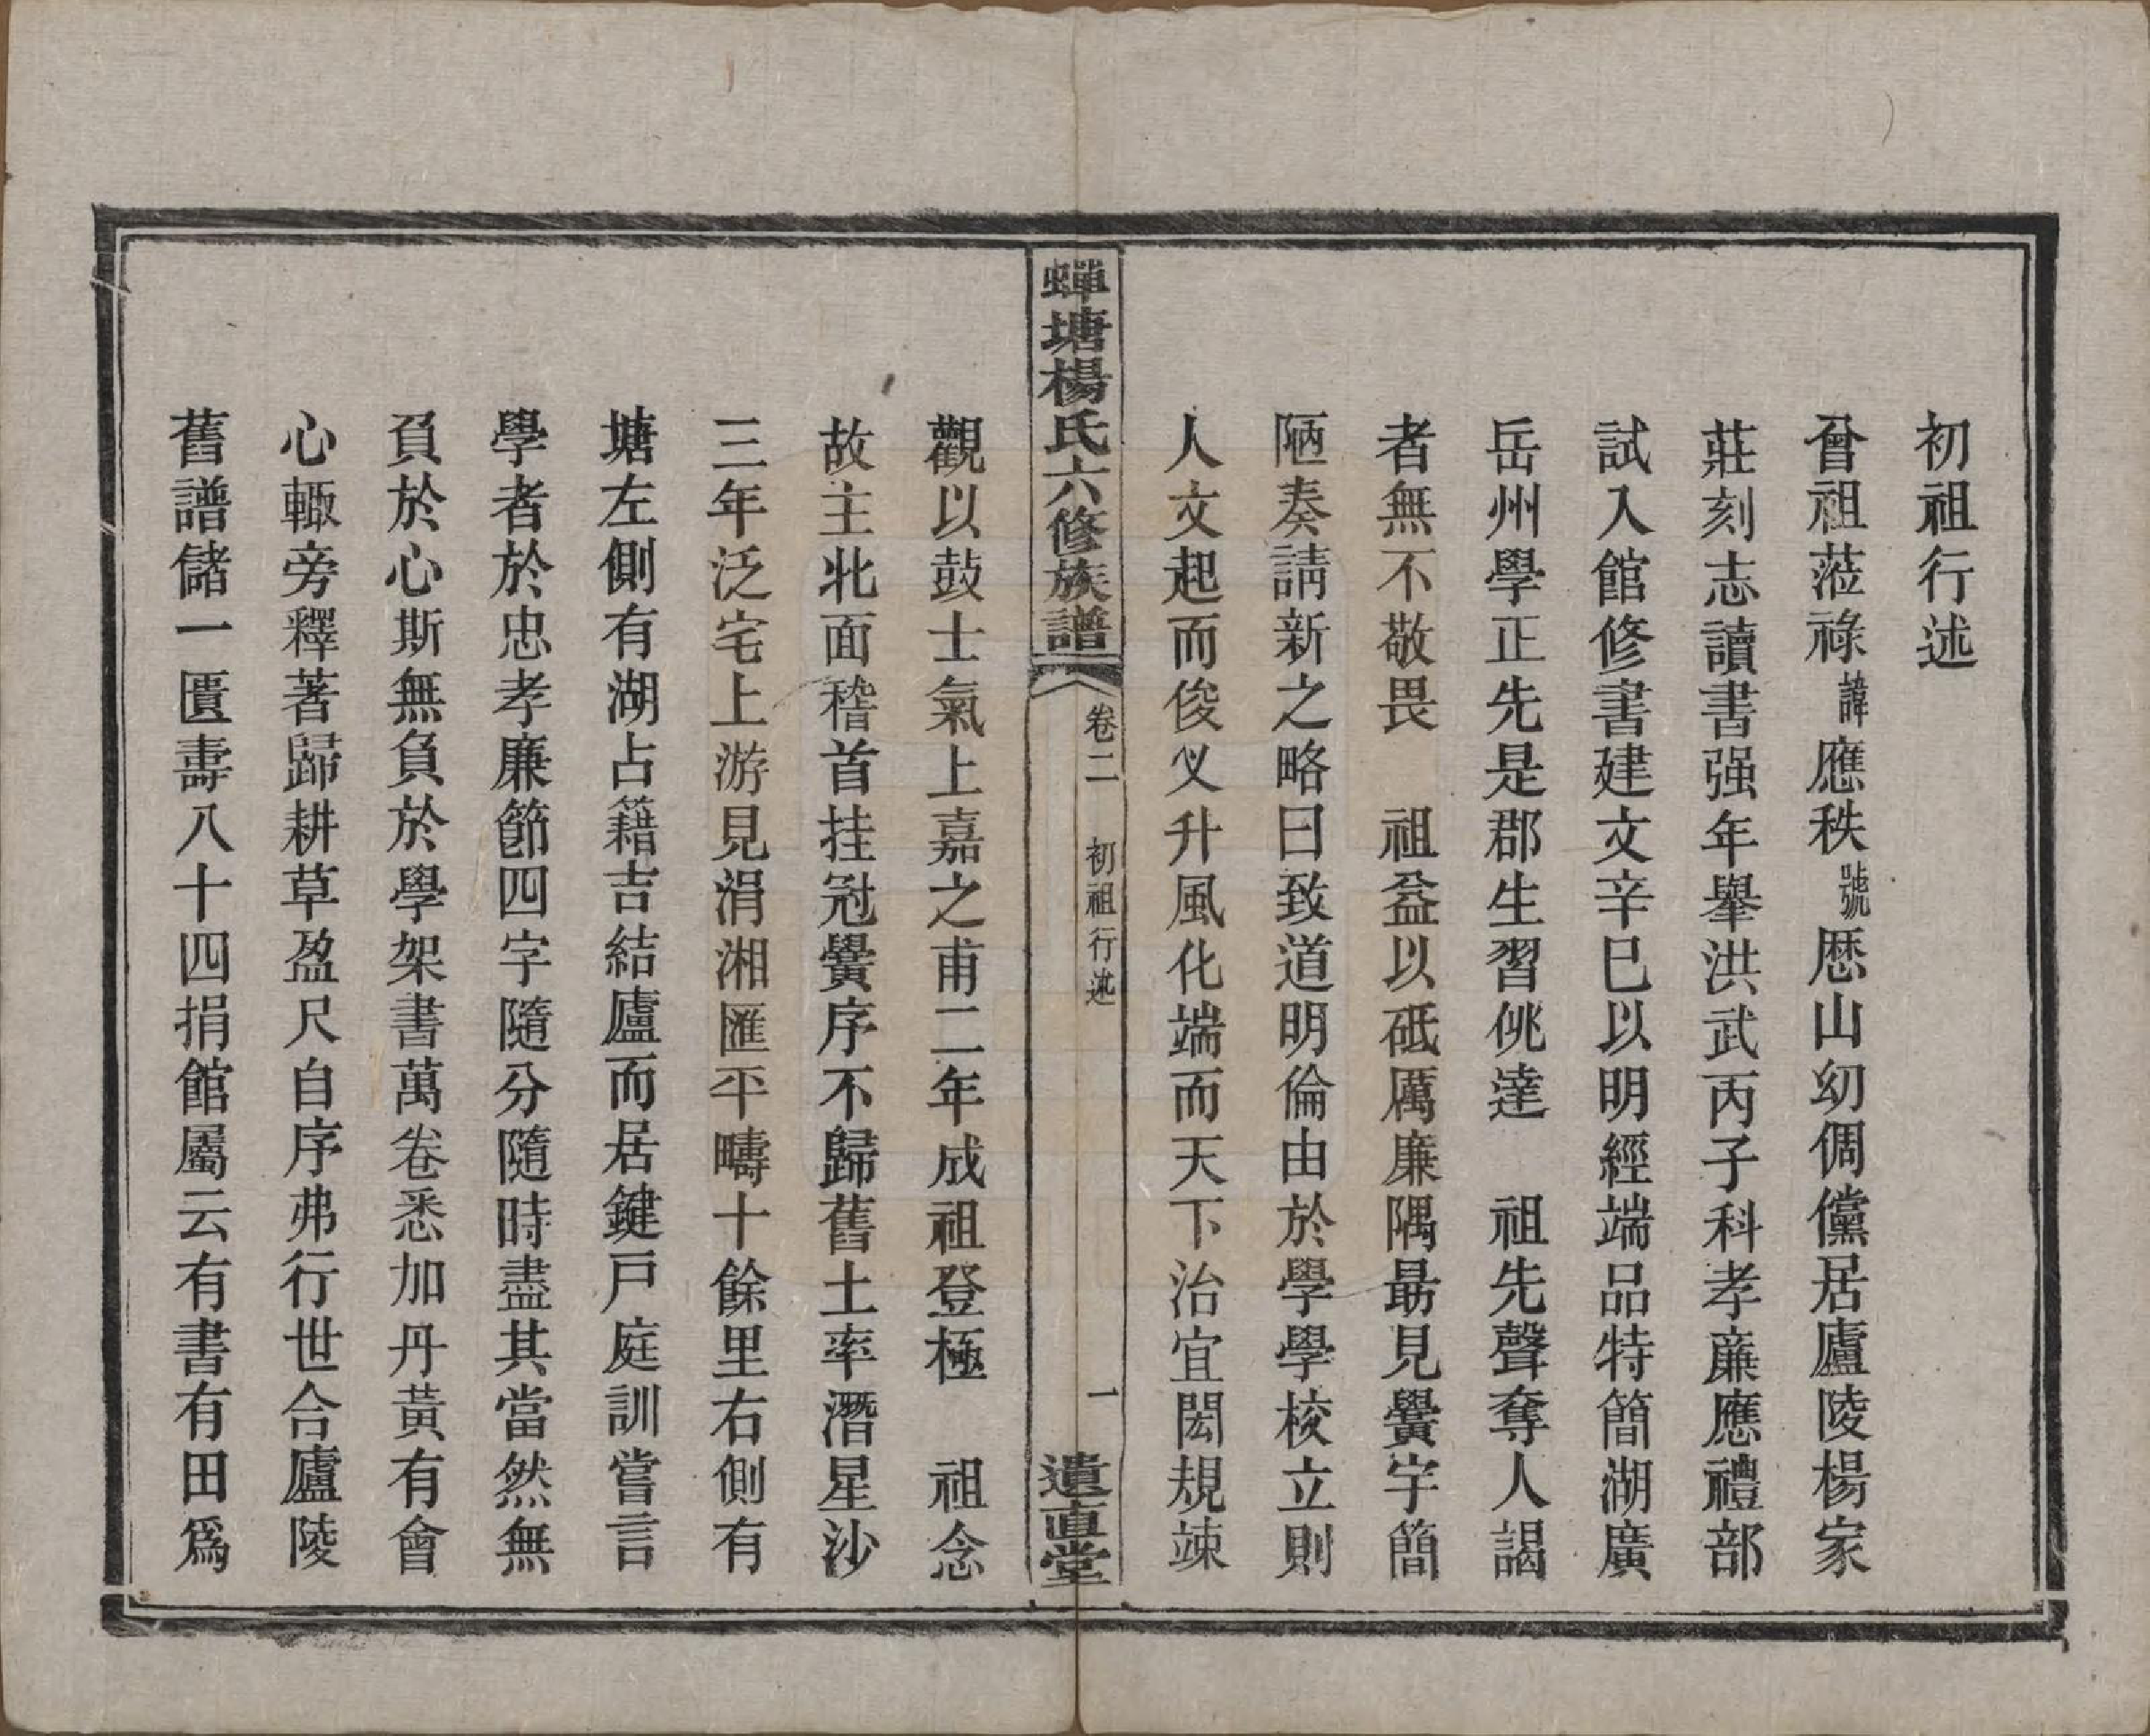 初祖行述
曾祖蒞祿諱應秩號厯山幼倜儻居廬陵楊家
莊刻志讀書强年舉洪武丙子科孝廉應禮部
試入館修書建文辛巳以明經端品特簡湖廣
岳州學正先是郡生習佻達　祖先聲奪人謁
者無不敬畏　祖益以砥厲廉隅最見黌宇簡
陋奏請新之略曰致道明倫由於學學校立則
人文起而俊乂升風化端而天下治宜閎規竦
蟬塘楊氏六修族譜　卷二　初祖行述　一　遺直堂
觀以鼓士氣上嘉之甫二年成祖登極　祖念
故主北面稽首挂冠黌序不歸舊土率潛星沙
三年泛宅上游見涓湘匯平疇十餘里右側有
塘左側有湖占籍吉結廬而居鍵戸庭訓嘗言
學者於忠孝廉節四字隨分隨時盡其當然無
負於心斯無負於學架書萬卷悉加丹黃有會
心輒旁釋著歸耕草盈尺自序弗行世合廬陵
舊譜儲一匱壽八十四捐館屬云有書有田爲